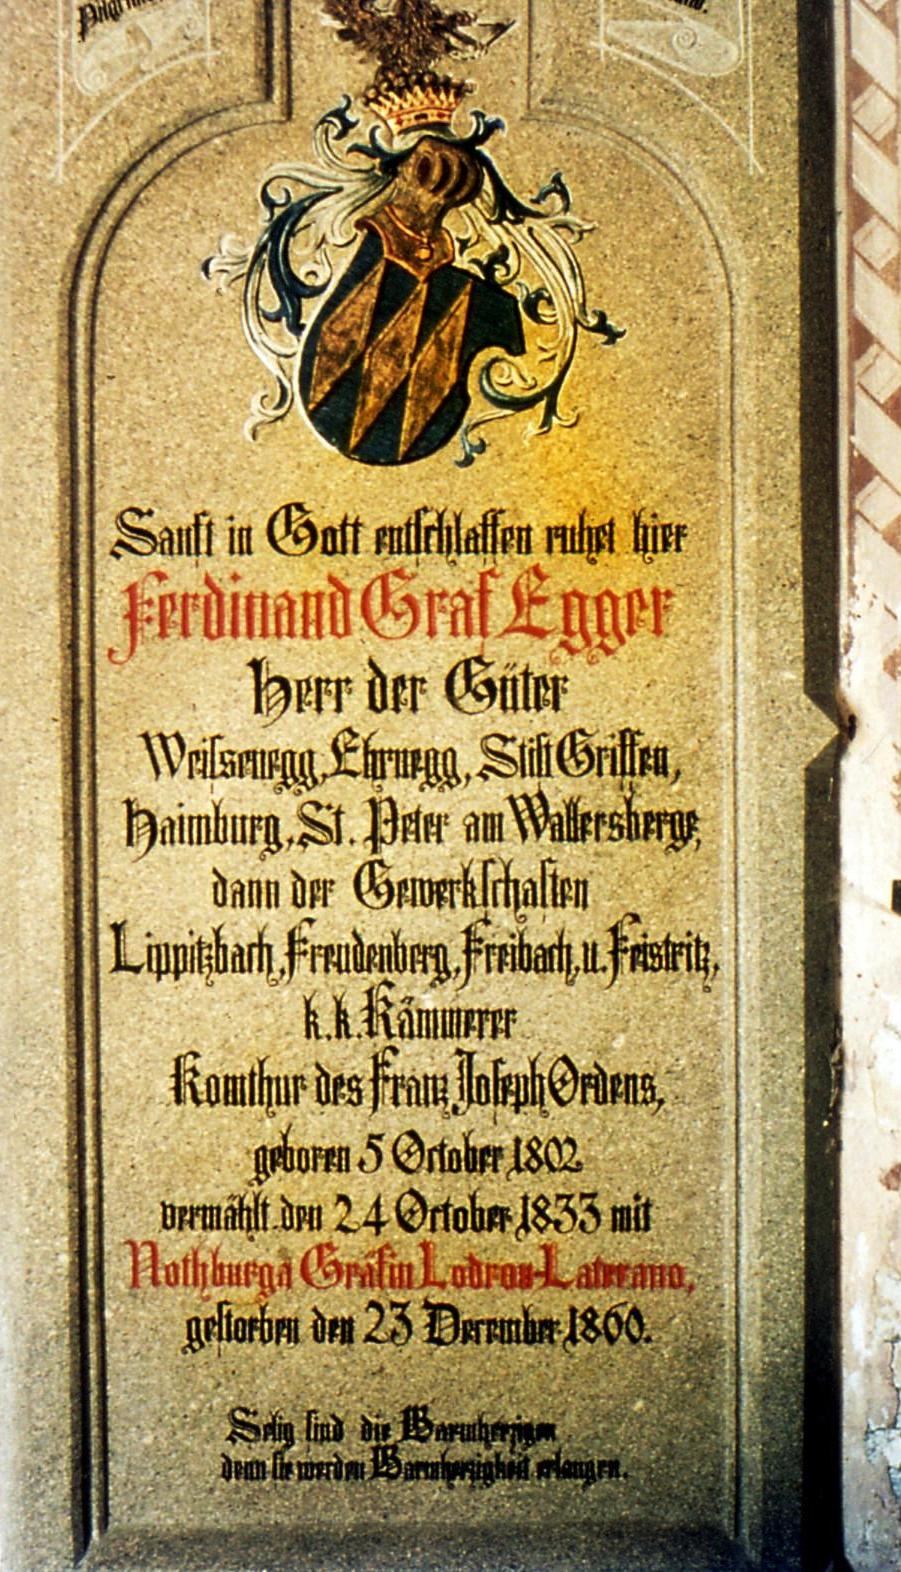 Sanft in Gott entschlaffen ruhet hier
Ferdinand Graf Egger
Herr der Güter
Weissenegg, Ehrnegg, Stift Griffen,
Haimburg, St. Peter am Wallersberge,
dann der Gewerkschaften
Lippitzbach, Freudenberg, Freibach, u. Feistritz,
k. k. Kämmerer
Komthur des Franz Joseph Ordens,
geboren 5 October 1802
vermählt den 24 October 1833 mit
Nothburga Gräfin Lodron-Laterano,
gestorben den 23 December 1860.
Selig sind die Barmherzigen
denn sie werden Barmherzigkeit erlangen.